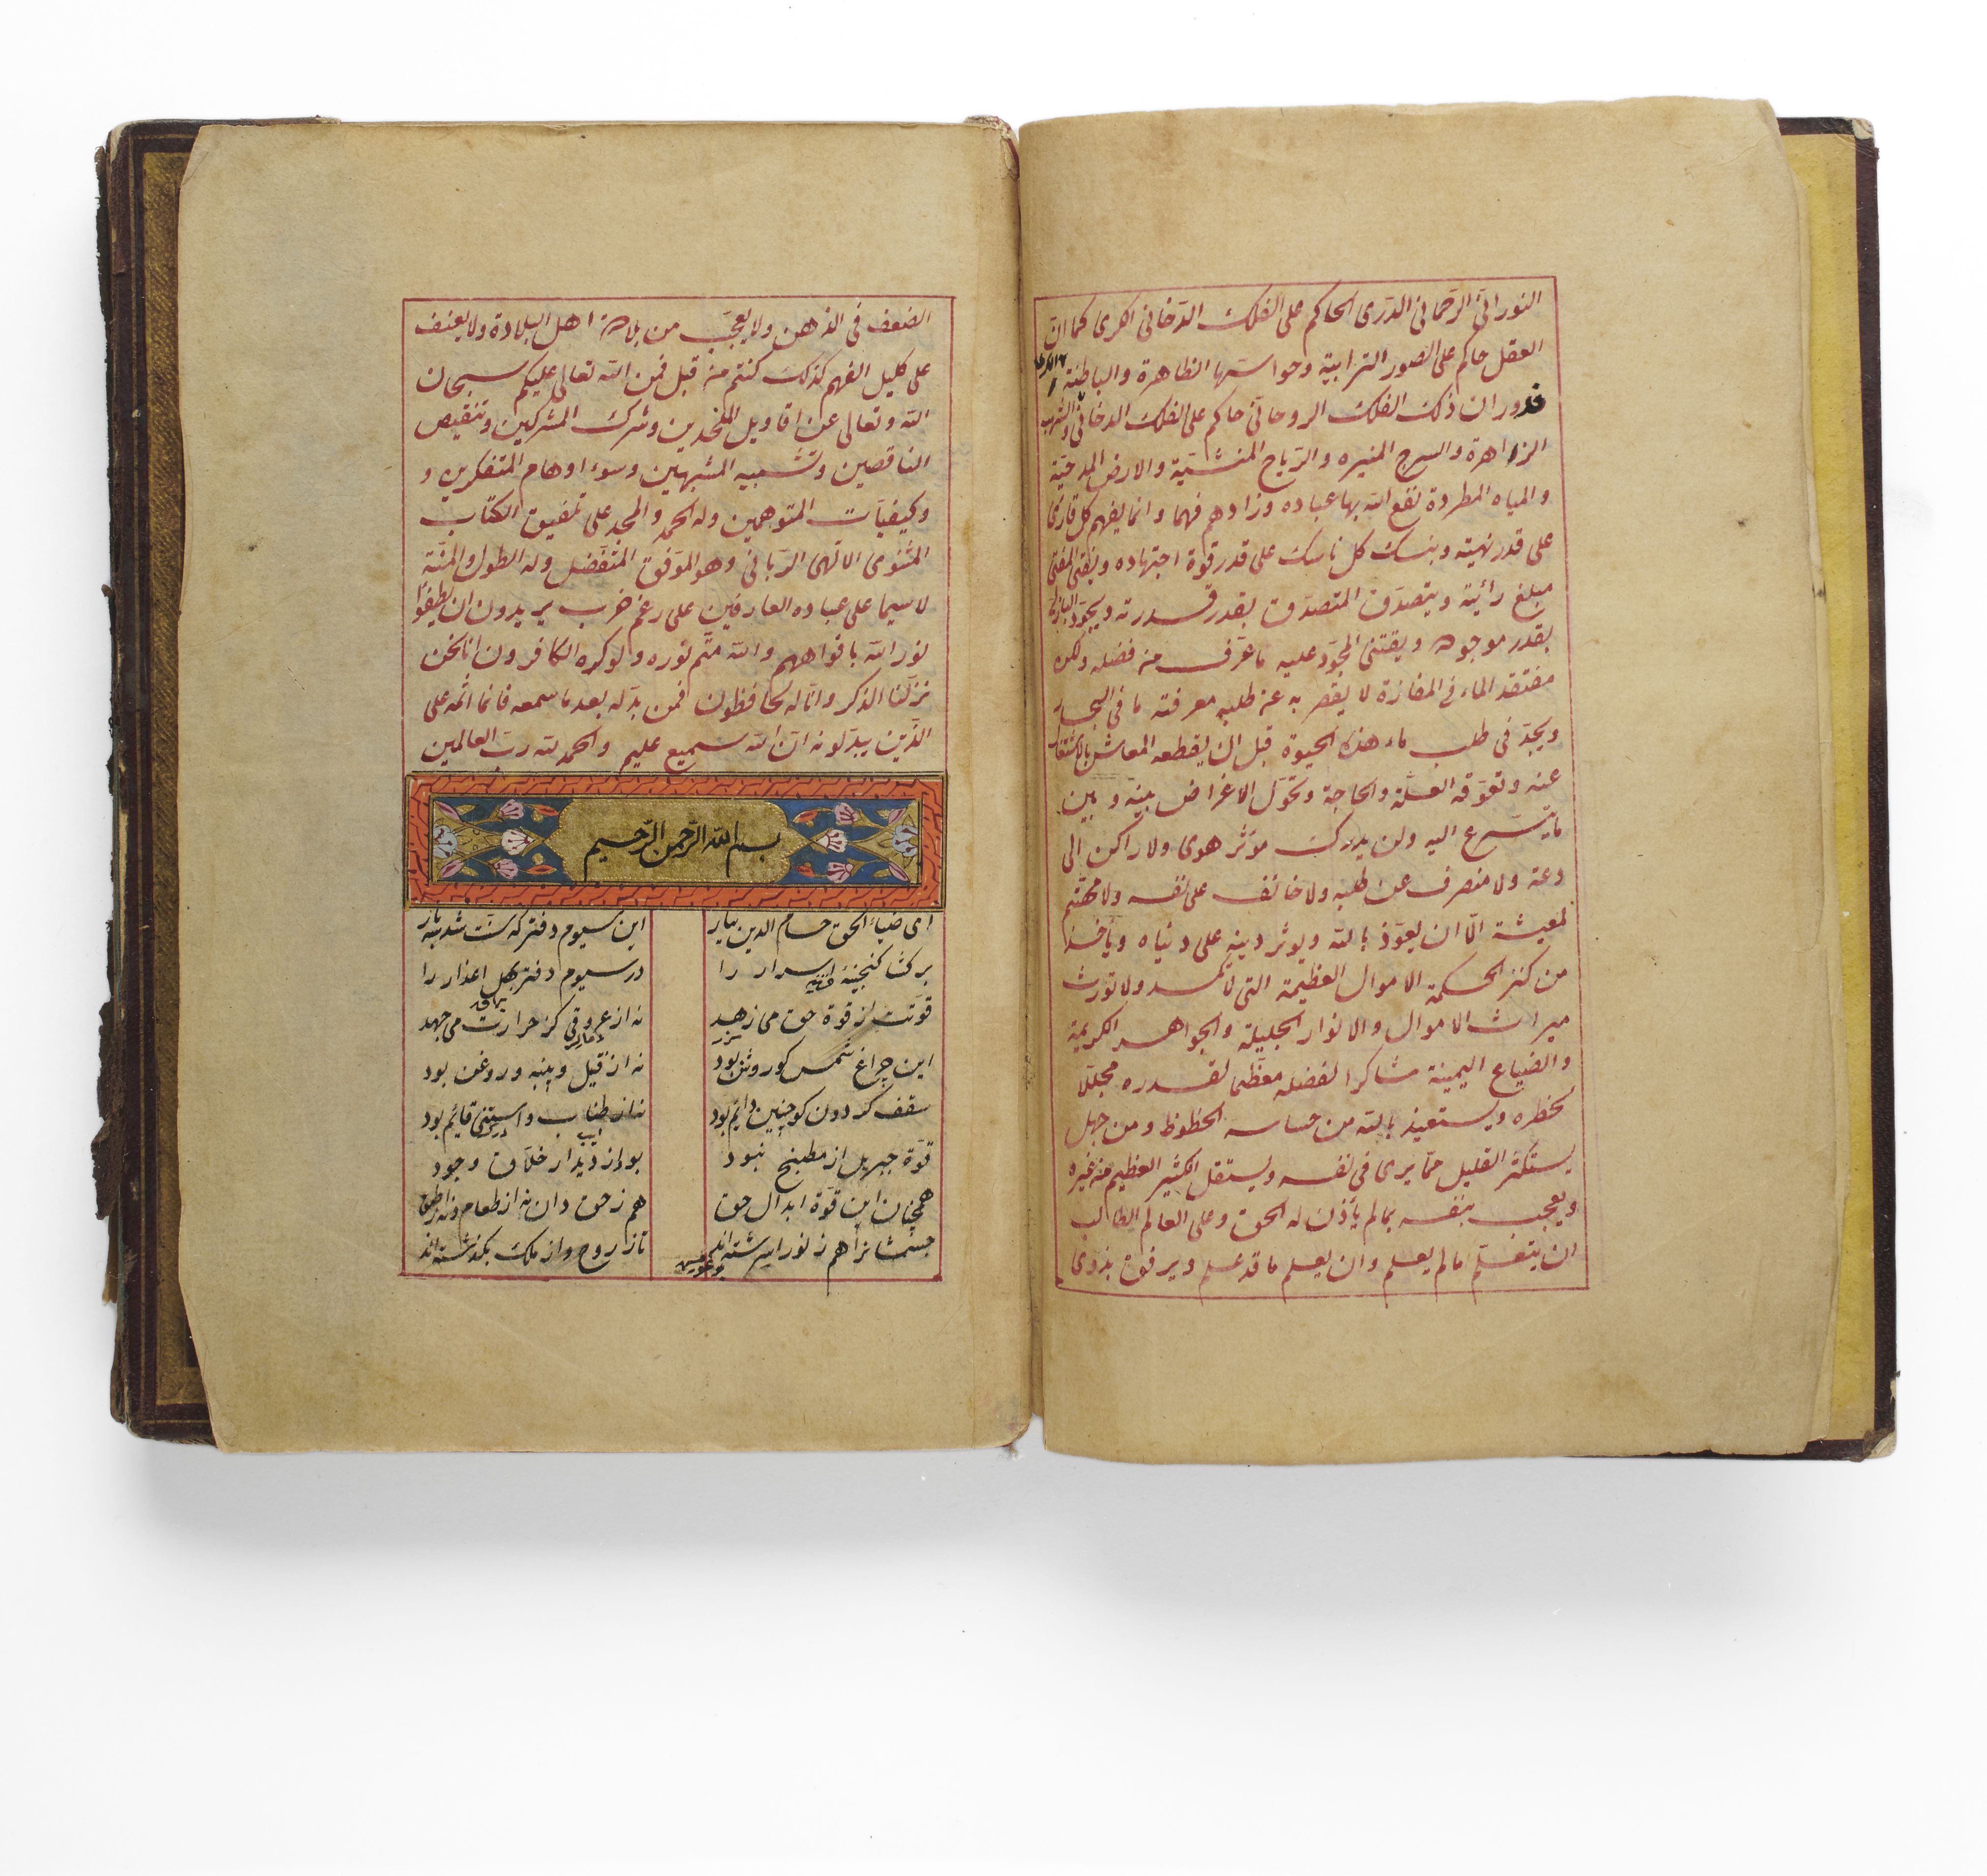 النورانی الرحمانی الدری الحاکم علی الفلک الدخانی الکری کما ان
العقل حاکم علی الصور الترابیة وحواسها الظاهرة والباطنة
فدوران ذلک الفلک الروحانی حاکم علی الفلک الدخانی والشهب
الزاهرة والسرج المنیره والریاح المنشیة والارض المدحیة
والمیاه المطردة نفع الله بها عباده وزادهم فهما وانما یفهم کل قاری
علی قدر نهیته وینسک کل ناسک علی قدر قوة اجتهاده ویفتی المفتی
مبلغ رأیه ویتصدق المتصدق بقدر قدرته ویجود الباذل
بقدر موجوده ویقتنی المجود علیه ما عرف من فضله ولکن
مفتقد الماء فی المفازة لا یقصر به عن طلبه معرفته ما فی البحار
ویجد فی طلب ماء هذه الحیوة قبل ان یقطعه المعاش بالاشتغال
عنه وتعوقه العلة والحاجة وتحول الاغراض بینه وبین
ما یتسرع الیه ولن یدرک مؤثر هوی ولا راکن الی
دعة ولا منصرف عن طلبه ولا خائف علی نفسه ولا مهتم
لمعیشة الا ان یعوذ بالله ویوثر دینه علی دنیاه ویأخذ
من کنز الحکمة الاموال العظیمة التی لا تکسد ولا تورث
میراث الاموال والانوار الجلیلة والجواهر الکریمة
والضیاع الیمینة شاکرا لفضله معظما لقدره مجللا
لخطره ویستعیذ بالله من خساسه الحظوظ ومن جهل
یستکثر القلیل مما یری فی نفسه ویستقل الکثیر العظیم من غیره
ویعجب بنفسه بما لم یأذن له الحق وعلی العالم الطالب
ان یتعلم ما لم یعلم وان یعلم ما قد علم ویرفق بذوی
الضعف فی الذهن ولا یعجب من بلادة اهل البلادة ولا یعنف
علی کلیل الفهم کذلک کنتم من قبل فمن الله تعالی علیکم سبحان
الله وتعالی عن اقاویل الملحدین وشرک المشرکین وتنقیص
الناقصین وتشبیه المشبهین وسوء اوهام المتفکرین و
وکیفیات المتوهمین وله الحمد والمجد علی تلفیق الکتاب
المثنوی الالهی الربانی وهو الموفق المتفضل وله الطول والمنة
لا سیما علی عباده العارفین علی رغم حزب یریدون ان یطفؤا
نور الله بافواههم والله متم نوره ولو کره الکافرون انا نحن
نزلنا الذکر وانا له لحافظون فمن بدله بعد ما سمعه فانما اثمه علی
الذین یبدلونه ان الله سمیع علیم والحمد لله رب العالمین
بسم الله الرحمن الرحیم
ای ضیاء الحق حسام الدین بیار این سیوم دفتر که سنت شد سه بار
برکشا کنجینهٔ اسرار را در سیوم دفتر بهل اعذار را
قوتت از قوة حق می زهد نه از عروقی کز حرارت می جهد
این چراغ شمس کو روشن بود نه از فتیل و پنبه و روغن بود
سقف کردون کو چنین دائم بود نه از طناب و استنی قایم بود
قوة جبریل از مطبخ نبود بود از دیدار خلاق وجود
همچنان این قوة ابدال حق هم ز حق دان نه از طعام و نه از طبق
جسمشانرا هم ز نور اسرشته اند تا ز روح و از ملک بکذشته اند